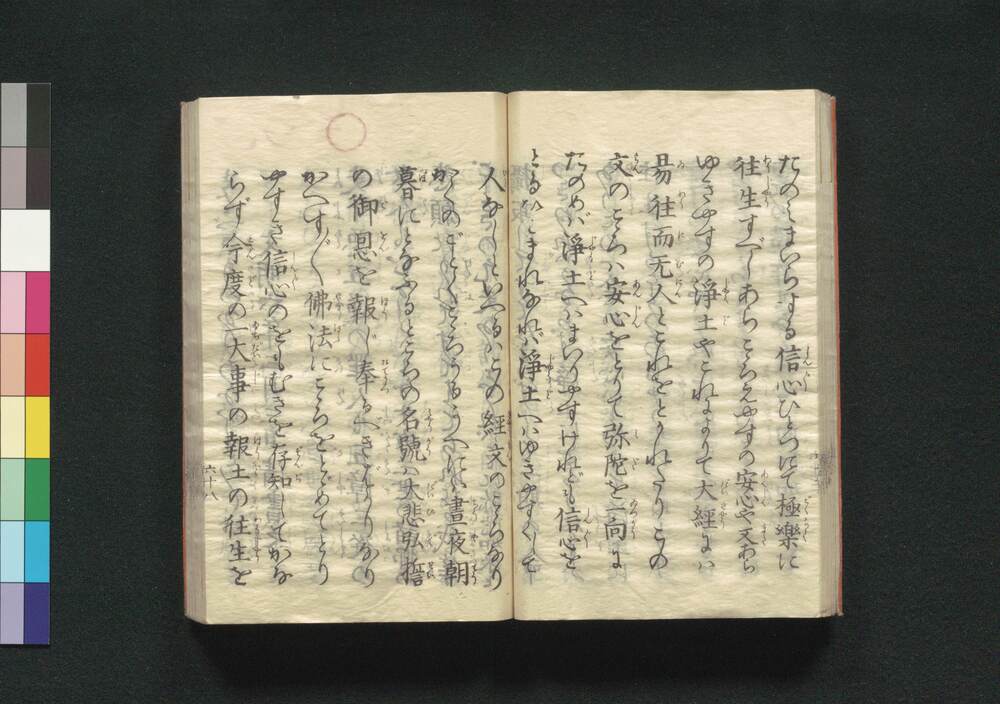 たのみまいらする信心ひとつにて極樂に
往生すべしあらこゝろえやすの安心や又あら
ゆきやすの淨土やこれによりて大經には
易往而无人とこれをとかれたりこの
文のこゝろは安心をとりて弥陀を一向に
たのめば淨土へはまいりやすけれども信心を
とるひとまれなれば淨土へはゆきやすくして
人なしといへるはこの經文のこゝろなり
かくのごとくこゝろうるうへには晝夜朝
暮にとなふるところの名號は大悲弘誓
の御恩を報じ奉るべきばかりなり
かへす〴〵佛法にこゝろをとゞめてとり
やすき信心のをもむきを存知してかな
らず今度の一大事の報土の往生を
六十八